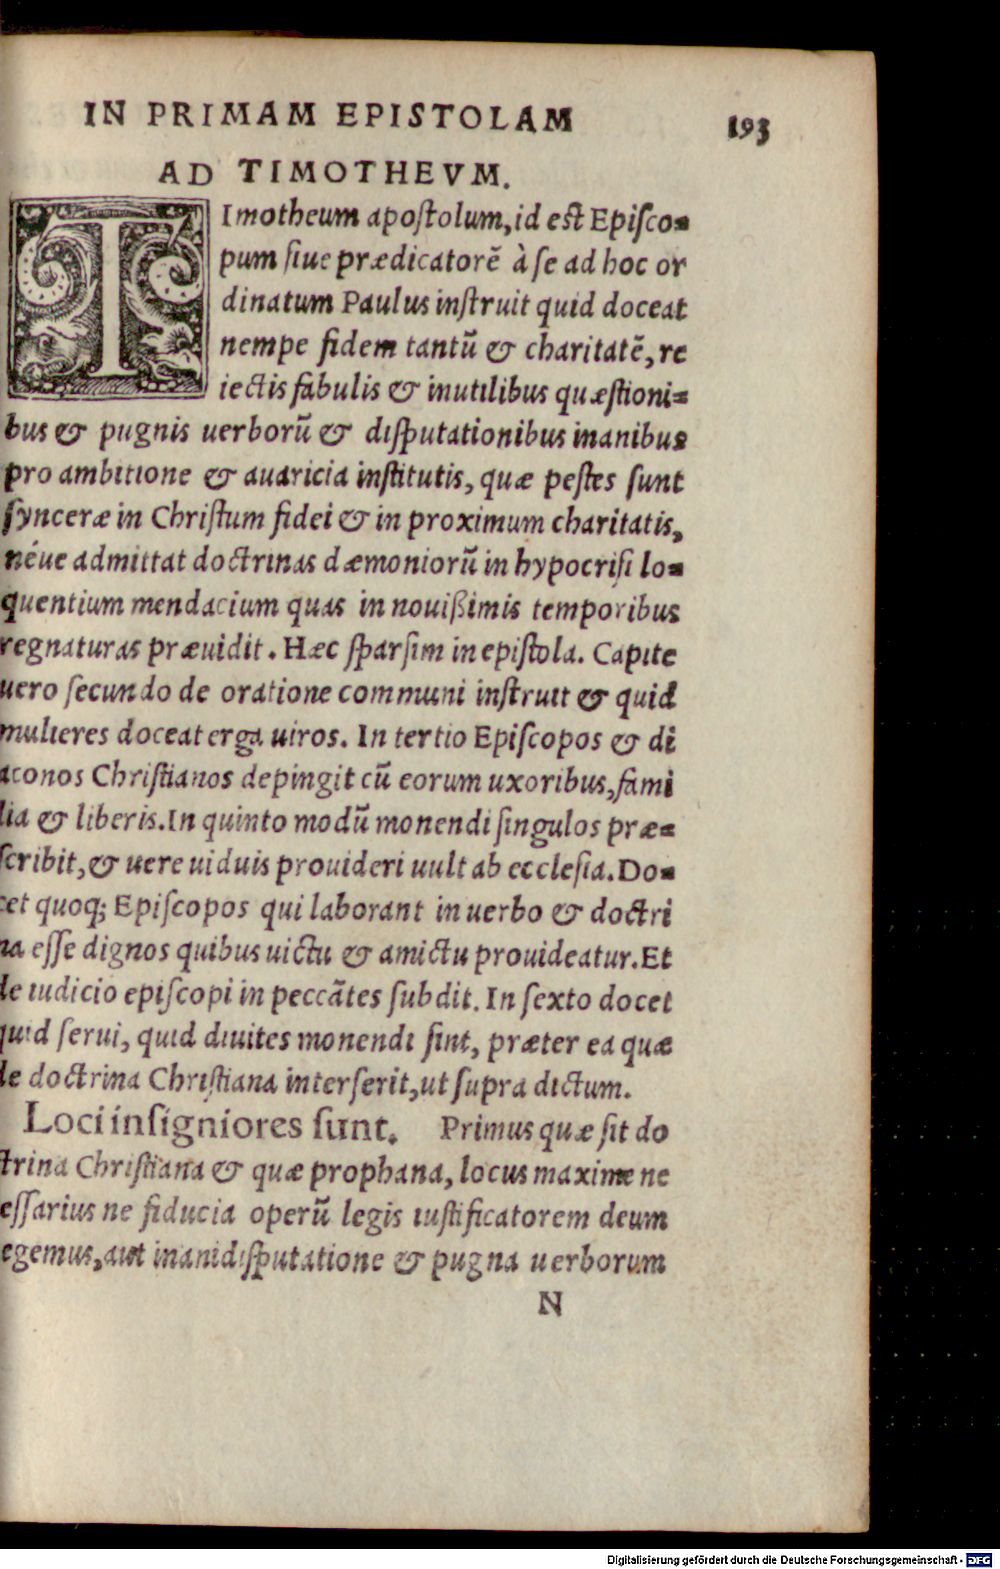 IN PRIMAM EPISTOLAM
193
AD TIMOTHEVM.
TImotheum apoſtolum, id eſt Epiſco=
pum ſiue prædicatorē à ſe ad hoc or
dinatum Paulus inſtruit quid doceat
nempe fidem tantū & charitatē, re
iectis fabulis & inutilibus quæſtioni=
bus & pugnis uerborū & diſputationibus inanibus
pro ambitione & auaricia inſtitutis, quæ peſtes sunt
ſynceræ in Chriſtum fidei & in proximum charitatis,
néue admittat doctrinas dæmoniorū in hypocriſi lo=
quentium mendacium quas in nouißimis temporibus
regnaturas præuidit. Hæc ſparſim in epiſtola. Capite
uero ſecundo de oratione communi inſtruit & quid
mulieres doceat erga uiros. In tertio Epiſcopos & di
aconos Chriſtianos depingit cū eorum uxoribus, fami
lia & liberis. In quinto modū monendi ſingulos præ=
ſcribit, & uere uiduis prouideri uult ab eccleſia. Do=
cet quoq; Epiſcopos qui laborant in uerbo & doctri
na eſſe dignos quibus uictu & amictu prouideatur. Et
de iudicio epiſcopi in peccātes ſubdit. In ſexto docet
quid ſerui, quid diuites monendi ſint, præter ea quæ
de doctrina Chriſtiana interſerit, ut ſupra dictum.
Loci inſigniores ſunt. Primus quæ ſit do
ctrina Chriſtiana & quæ prophana, locus maxime ne
eſſarius ne fiducia operū legis iuſtificatorem deum
egemus, aut inani diſputatione & pugna uerborum
N
Digitalisierung gefördert durch die Deutsche Forschungsgemeinschaft - DFG